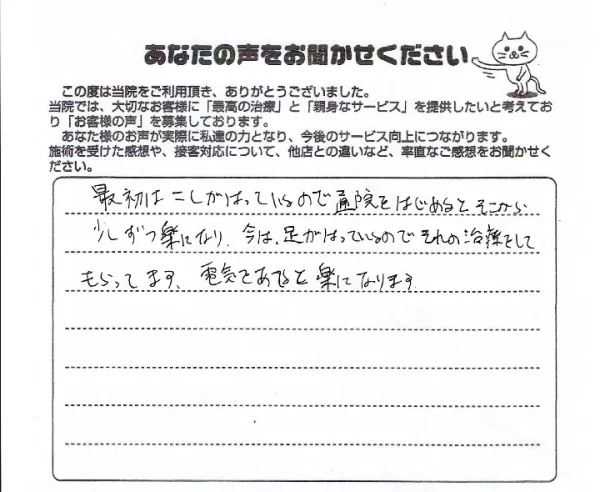 あなたの声をお聞かせください
この度は当院をご利用頂き、ありがとうございました。
当院では、大切なお客様に「最高の治療」と「親身なサービス」を提供したいと考えてお
り「お客様の声」を募集しております。
あなた様のお声が実際に私達の力となり、今後のサービス向上につながります。
施術を受けた感想や、接客対応について、他店との違いなど、率直なご感想をお聞かせく
ださい。
最初はこしがはっているので通院をはじめるとそこから
少しずつ楽になり、今は、足がはっているのでそれの治療をして
もらってます、電気をあてると楽になります